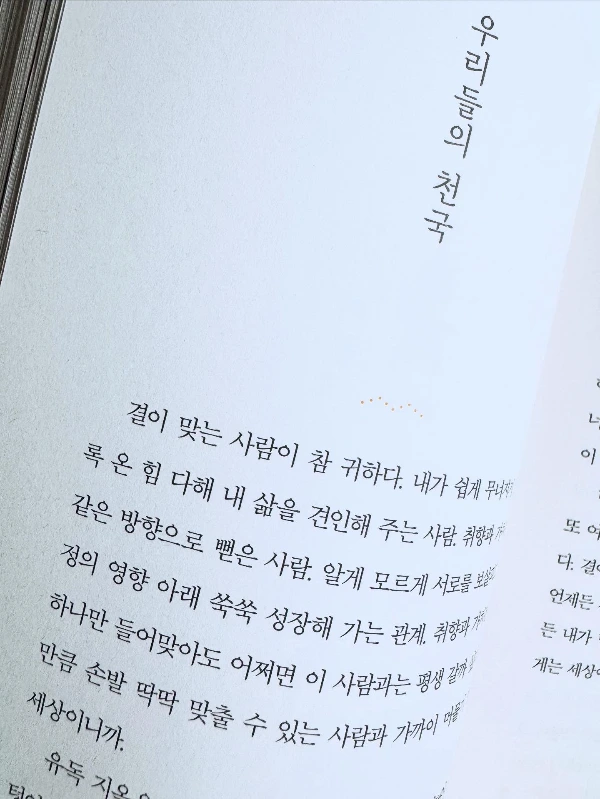 우리들의 천국
결이 맞는 사람이 참 귀하다. 내가 쉽게
록 온 힘 다해 내 삶을 견인해 주는 사람. 취향과
같은 방향으로 뻗은 사람. 알게 모르게 서로를
정의 영향 아래 쑥쑥 성장해 가는 관계. 취향과
하나만 들어맞아도 어쩌면 이 사람과는 평생
만큼 손발 딱딱 맞출 수 있는 사람과 가까이
세상이니까.
유독
이
또
다.
언제든
든 내가
게는